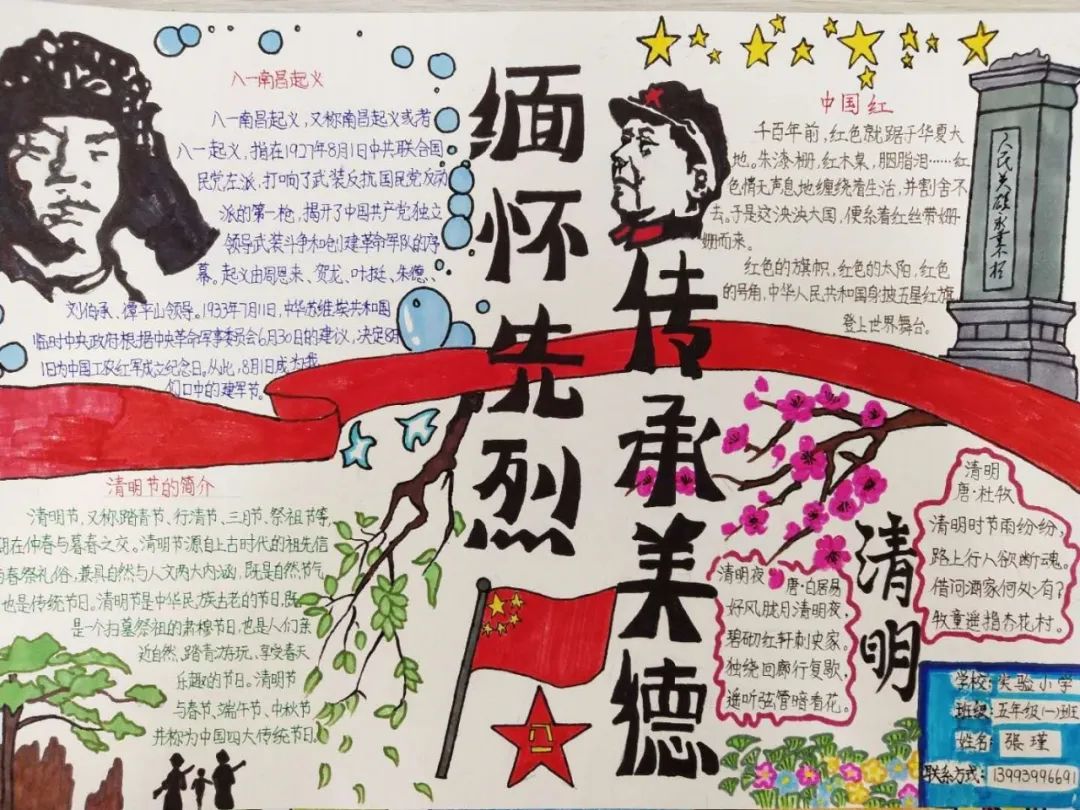 缅怀先烈
传承美德
八一南昌起义
八一南昌起义,又称南昌起义或者
八一起义,指在1927年8月1日中共联合国
民党左派,打响了武装反抗国民党反动
派的第一枪,揭开了中国共产党独立
领导武装斗争和创建革命军队的序
幕。起义由周恩来、贺龙、叶挺、朱德、
刘伯承、谭平山领导。1933年7月11日,中华苏维埃共和国
临时中央政府根据中央革命军事委员会6月30日的建议,决定8月
1日为中国工农红军成立纪念日。从此,8月1日成为我
们口中的建军节。
中国红
千百年前,红色就踞于华夏大
地。朱漆栅,红木桌,胭脂泪……红
色情无声息地缠绕着生活,并割舍不
去。于是这泱泱大国,便系着红丝带姗
姗而来。
红色的旗帜,红色的太阳,红色
的号角,中华人民共和国身披五星红旗
登上世界舞台。
人民英雄永垂不朽
清明节的简介
清明节,又称踏青节、行清节、三月节、祭祖节等,
期在仲春与暮春之交。清明节源自上古时代的祖先信
与春祭礼俗,兼具自然与人文两大内涵,既是自然节气
也是传统节日。清明节是中华民族古老的节日,既
是一个扫墓祭祖的肃穆节日,也是人们亲
近自然、踏青游玩、享受春天
乐趣的节日。清明节
与春节、端午节、中秋节
并称为中国四大传统节日。
八一
清明夜
唐·白居易
好风胧月清明夜,
碧砌红轩刺史家。
独绕回廊行复歇,
遥听弦管暗看花。
清明
清明
唐·杜牧
清明时节雨纷纷,
路上行人欲断魂。
借问酒家何处有?
牧童遥指杏花村。
学校:实验小学
班级:五年级(一)班
姓名:張瑾
联系方式:13993996691